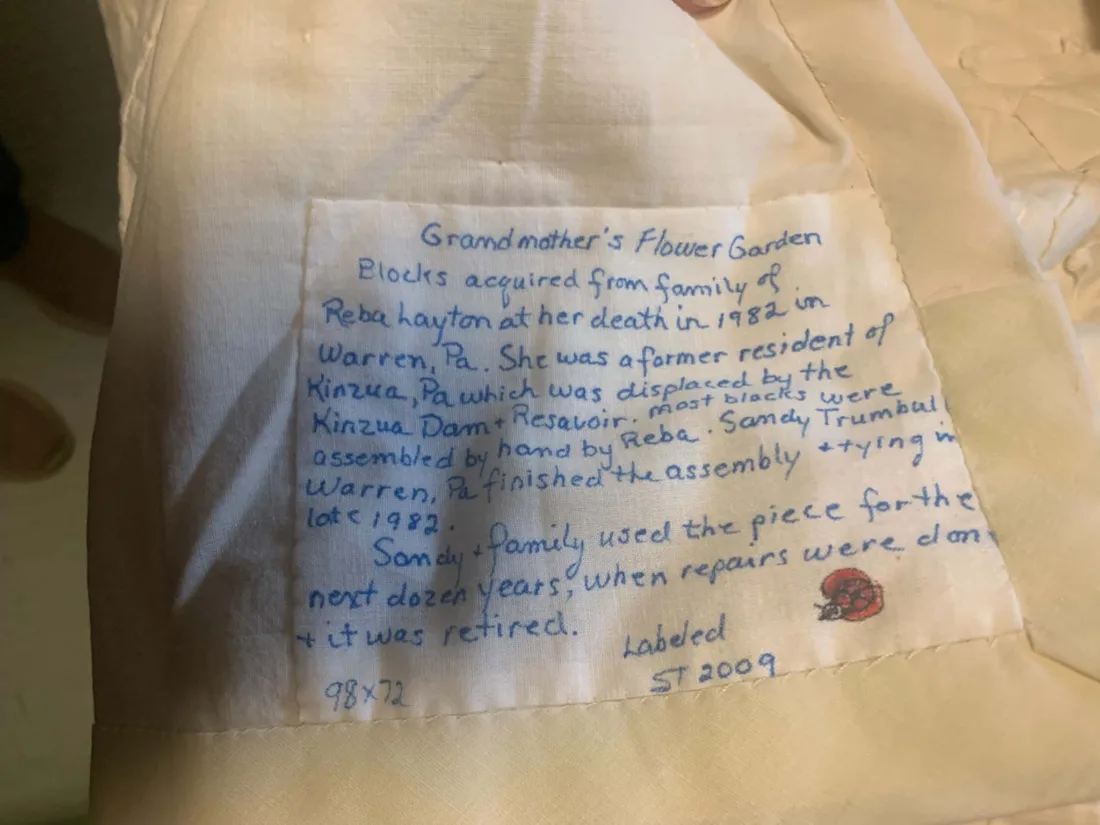 Grandmother's Flower Garden
Blocks acquired from family of
Reba Layton at her death in 1982 in
Warren, Pa. She was a former resident of
Kinzua, Pa which was displaced by the
Kinzua Dam + Resavoir. most blocks were
assembled by hand by Reba. Sandy Trumbull
Warren, Pa finished the assembly + tying in
late 1982.
Sandy + family used the piece for the
next dozen years, when repairs were don
+ it was retired.
Labeled
98x72
ST 2009